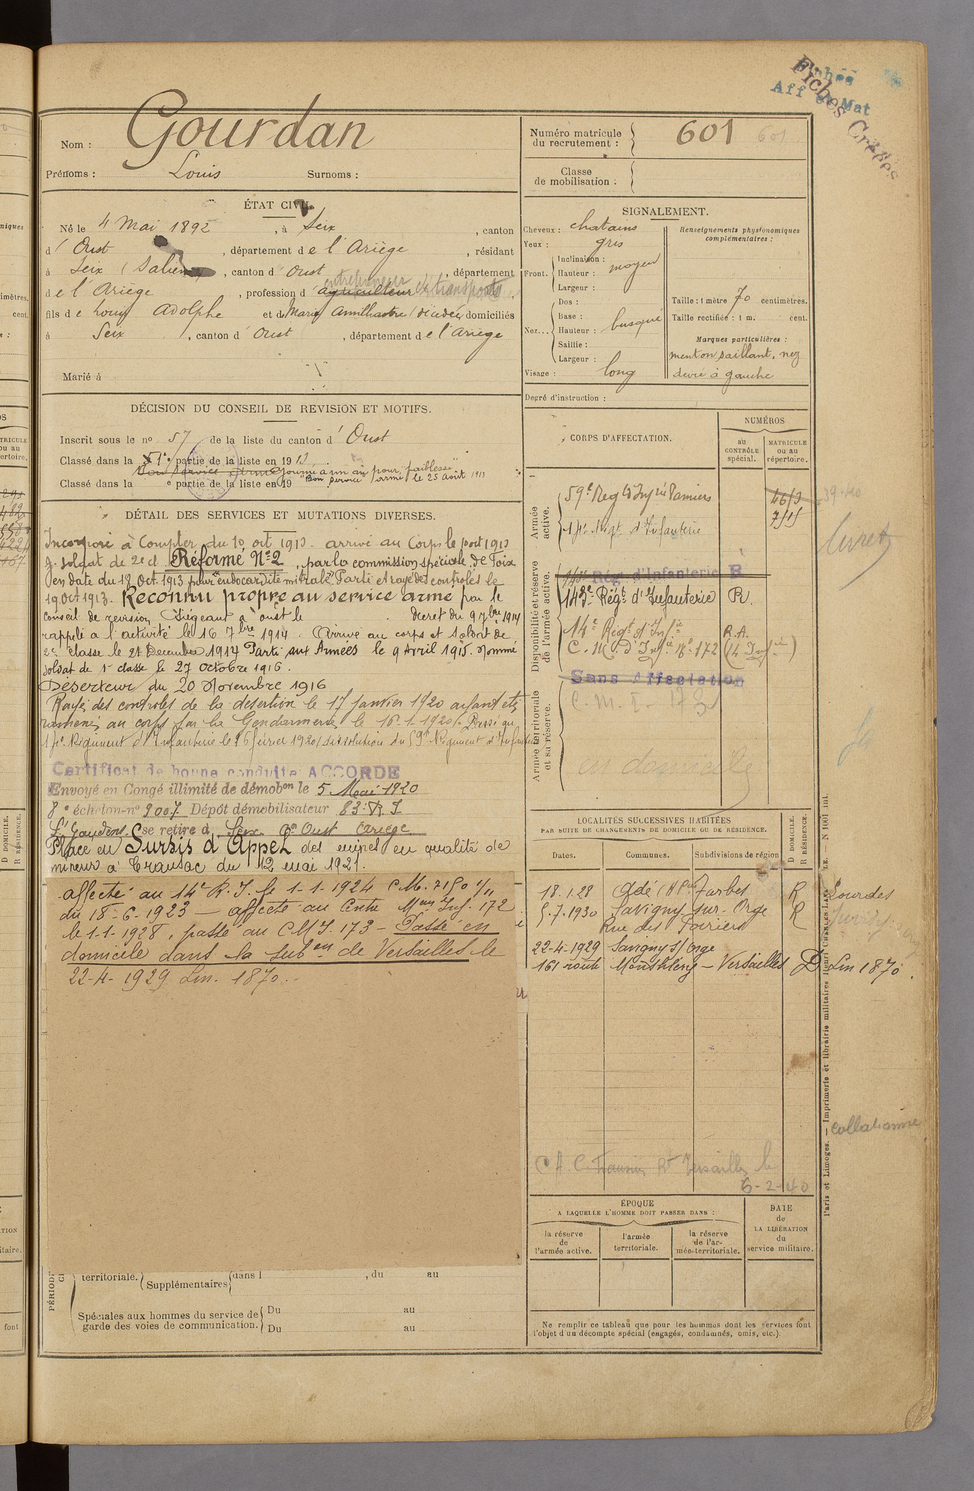 Fichée
Aff Mat
Fiches Créées
Nom : Gourdan
Prénoms : Louis Surnoms :
Numéro matricule du recrutement : 601 601
Classe de mobilisation :
ÉTAT CIVIL.
Né le 4 Mai 1892, à Seix, canton
d'Oust, département de l'Ariège, résidant
à Seix, canton d'Oust, département
de l'Ariège, profession d'agriculteur entrepreneur de transports
fils de Louis Adolphe et de Marie, domiciliés
à Seix, canton d'Oust, département de l'Ariège
Marié à
SIGNALEMENT.
Cheveux : chatains
Yeux : gris
Front. Inclinaison :
Hauteur : moyen
Largeur :
Nez. Dos :
Base :
Hauteur : busqué
Saillie :
Largeur :
Visage : long
Renseignements physionomiques complémentaires :
Taille : 1 mètre 70 centimètres.
Taille rectifiée : 1 m. cent.
Marques particulières :
menton saillant, nez
dévié à gauche
Degré d'instruction :
DÉCISION DU CONSEIL DE REVISION ET MOTIFS.
Inscrit sous le no 57 de la liste du canton d'Oust
Classé dans la 1re partie de la liste en 1913
Bon service armé ajourné à un an pour faiblesse
Classé dans la e partie de la liste en 19 Bon service armé le 25 août 1913
DÉTAIL DES SERVICES ET MUTATIONS DIVERSES.
Incorporé à Compter du 10 oct 1913. arrivé au Corps le oct 1913
soldat de 2e cl Réformé No 2, par la commission spéciale de Foix
en date du 18 Oct. 1913 pour endocardite mitrale. Parti et rayé des controles le
19 oct 1913. Reconnu propre au service armé par le
conseil de revision Siégeant à oust le decret du 9 7bre 1914
rappelé à l'activité le 16 7bre 1914. Arrivé au corps et Soldat de
2e classe le 21 Décembre 1914 Parti aux Armées le 9 Avril 1915. Nommé
soldat de 1e classe le 27 octobre 1916.
Déserteur du 20 Novembre 1916
Rayé des controles de la désertion le 17 janvier 1920 ayant été
ramené au corps par la Gendarmerie le 16-1-1920. Passé au
Régiment d'Infanterie le 16 février 1920 (dissolution du 59e Régiment d'Infanterie
Certificat de bonne conduite ACCORDÉ
Envoyé en Congé illimité de démobon le 5 Mai 1920
8e échelon no 9007 Dépôt démobilisateur 83e R.I.
St Gaudens Se retire à Seix Con Oust Ariège
Placé en Sursis d'Appel des mines en qualité de
mineur à Cransac du 12 mai 1921.
affecté au 14e R.I. le 1-1-1924 C.M. 7150 1/11
du 18-6-1923 — affecté au Centre Mon Inf. 172
le 1-1-1928, passé au C.M.I. 173 — Passé en
domicile dans la subon de Versailles le
22-4-1929 Lin. 1870.
CORPS D'AFFECTATION.
NUMÉROS
au CONTRÔLE spécial.
MATRICULE ou au répertoire.
Armée active.
59e Reg d'Infie Pamiers
Regt d'Infanterie
Disponibilité et réserve de l'armée active.
143e Rég. d'Infanterie R
143e Régt d'Infanterie R.
14e Régt d'Infie R.A.
C. M. d'Infie No 172 (14 Infie)
Armée territoriale et sa réserve.
Sans Affectation
C. M. I - 173
en domicile
livret
LOCALITÉS SUCCESSIVES HABITÉES
PAR SUITE DE CHANGEMENTS DE DOMICILE OU DE RÉSIDENCE.
Dates. Communes. Subdivisions de région D DOMICILE. R RÉSIDENCE.
18.1.28 Adé (H P) Tarbes R Lourdes
5.7.1930 Savigny sur-Orge R Juvisy
Rue des Poiriers
22-4-1929 Savigny s/ Orge
161 route Montlhéry — Versailles D Lin 1870.
collationné
Versailles le
5-2-40
ÉPOQUE
A LAQUELLE L'HOMME DOIT PASSER DANS :
la réserve de l'armée active.
l'armée territoriale.
la réserve de l'armée territoriale.
DATE de LA LIBÉRATION du service militaire.
territoriale. Supplémentaires dans l , du au
Spéciales aux hommes du service de garde des voies de communication. Du au
Du au
Ne remplir ce tableau que pour les hommes dont les services font
l'objet d'un décompte spécial (engagés, condamnés, omis, etc.).
Paris et Limoges. — Imprimerie et librairie militaires Henri CHARLES-LAVAUZELLE. — N 1001 mi.